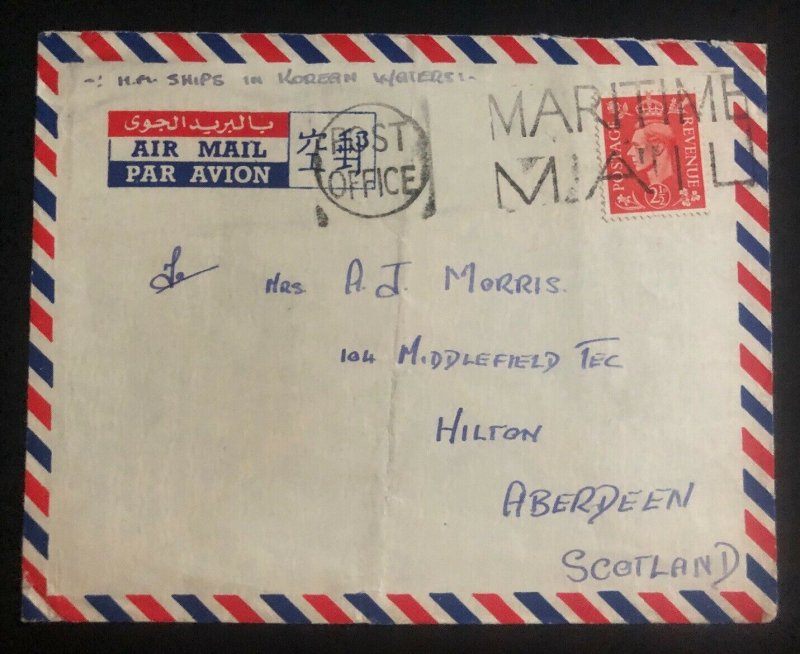 -: H.M. SHIPS IN KOREAN WATERS :-
بالبريد الجوى
AIR MAIL
PAR AVION
空郵
POST
OFFICE
MARITIME
MAIL
POSTAGE
REVENUE
2½
To
MRS. A. J. MORRIS.
104 MIDDLEFIELD TEC
HILTON
ABERDEEN
SCOTLAND